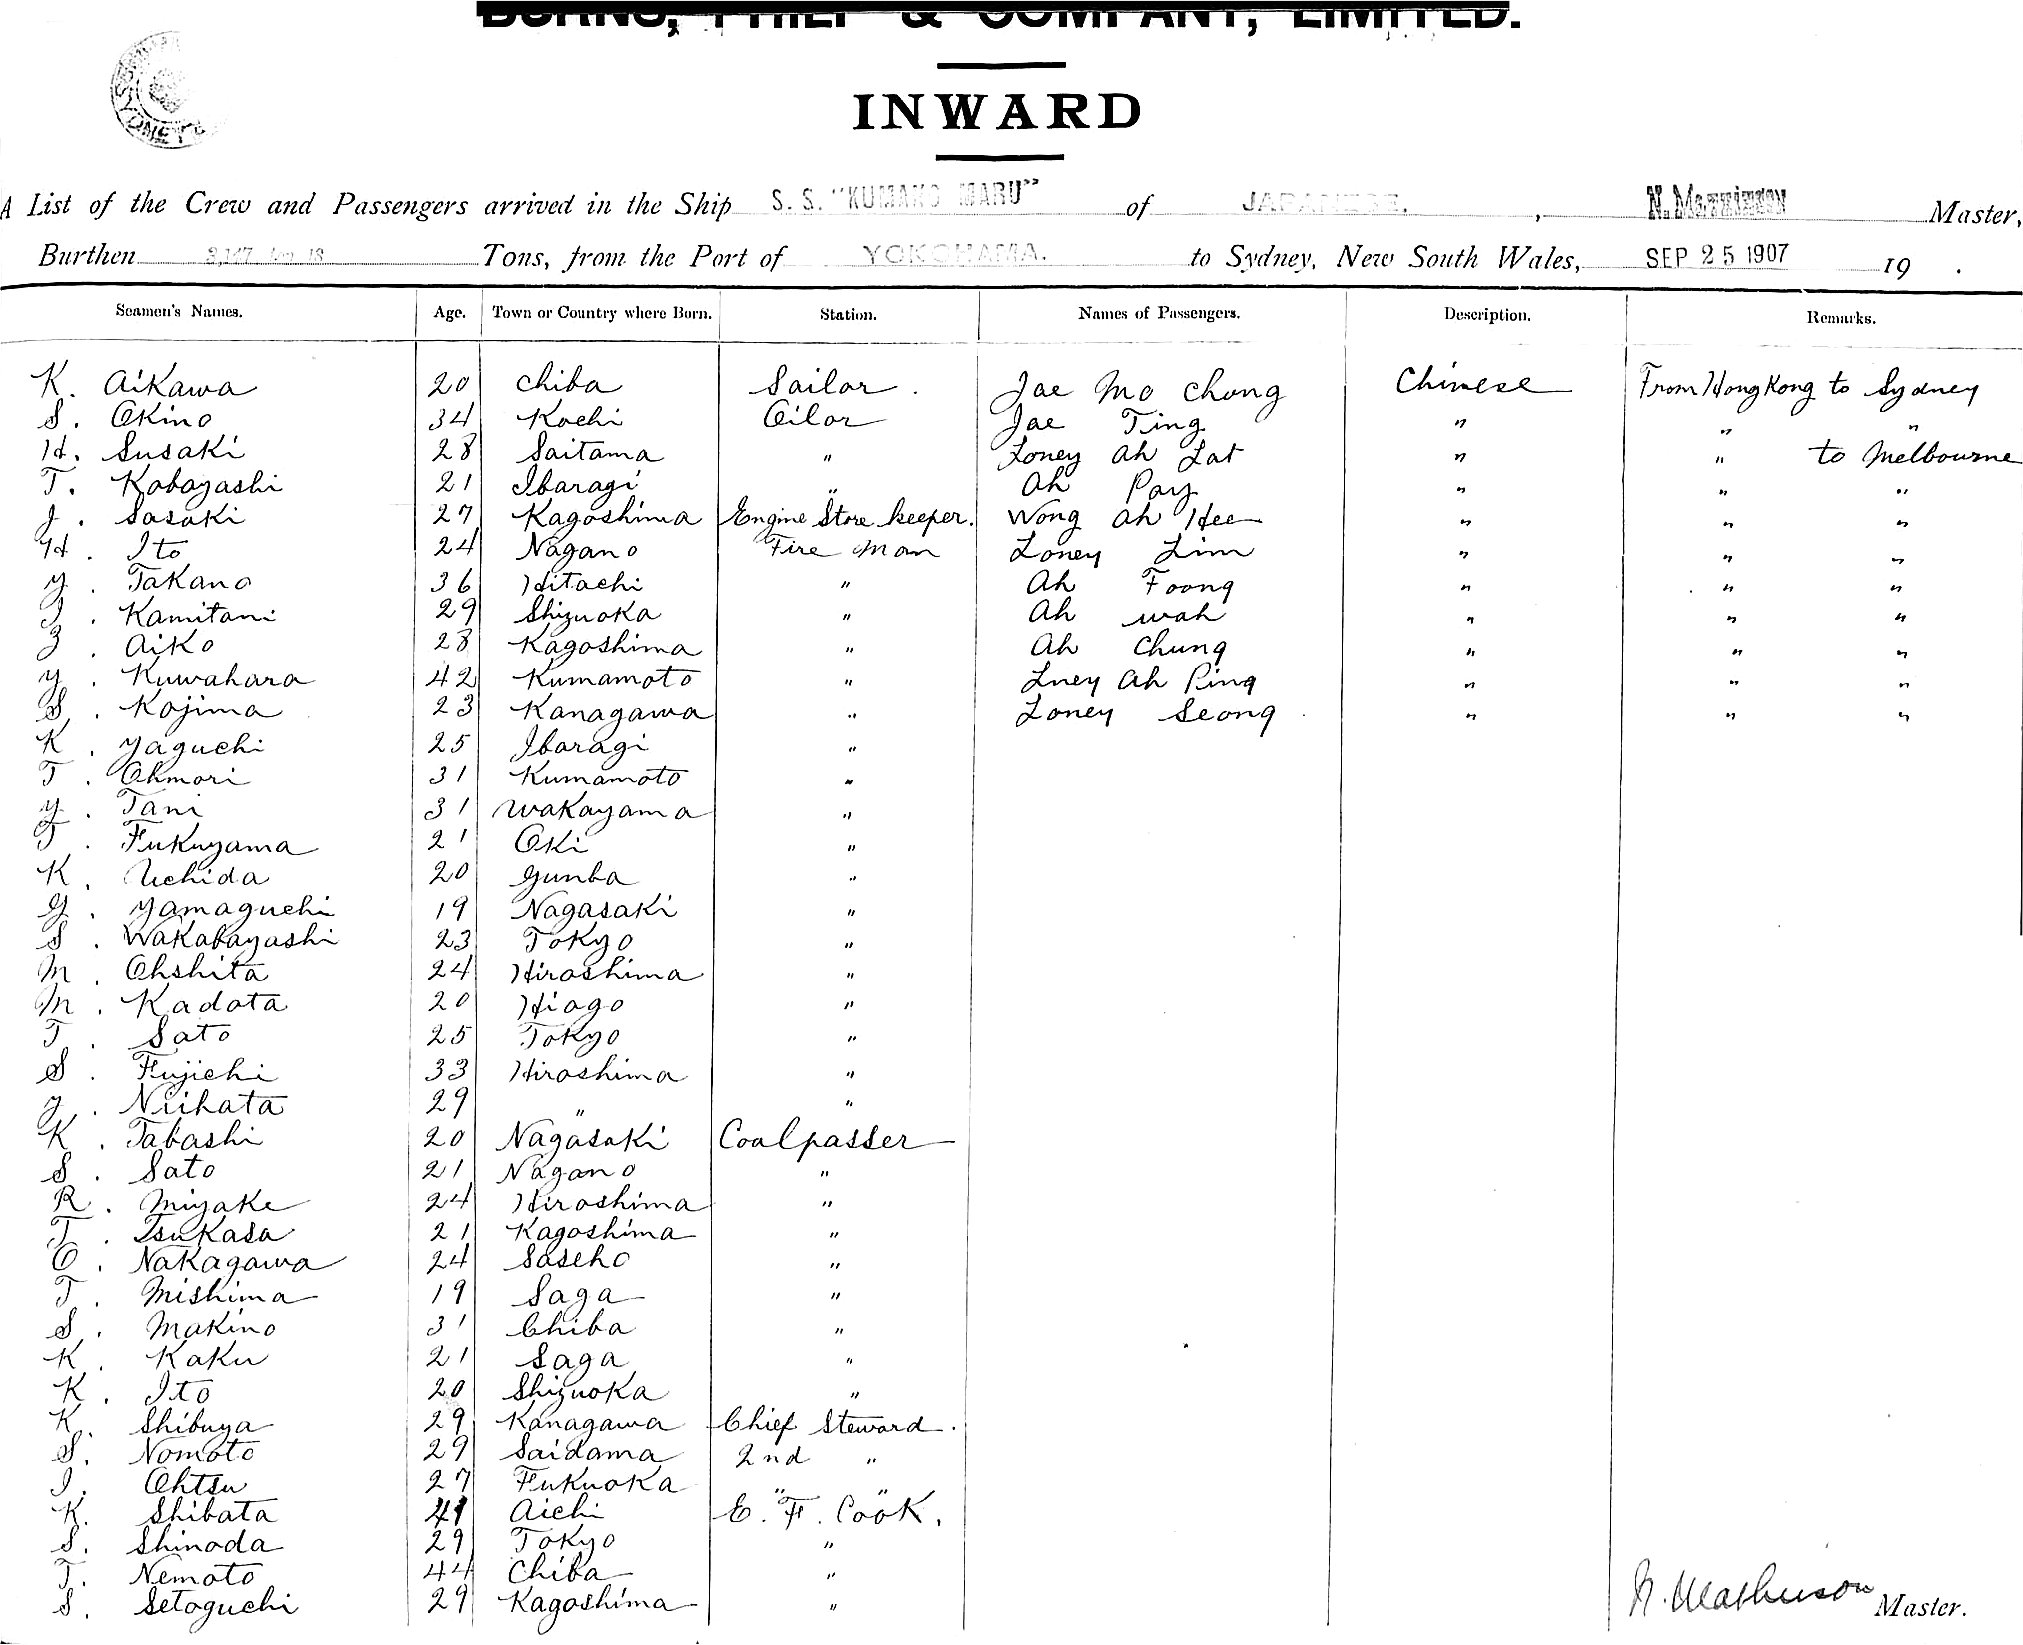 BURNS, PHILP & COMPANY, LIMITED.
INWARD
SYDNEY
A List of the Crew and Passengers arrived in the Ship S. S. "KUMANO MARU" of JAPANESE. , N. Mathieson Master,
Burthen 3,147 Tons, from the Port of YOKOHAMA. to Sydney, New South Wales, SEP 25 1907 19 .
Seamen's Names. Age. Town or Country where Born. Station. Names of Passengers. Description. Remarks.
K. Aikawa 20 Chiba Sailor. Jae Mo Chong Chinese From Hong Kong to Sydney
S. Okino 34 Kochi Oilor Jae Ting " " "
H. Susaki 28 Saitama " Loney Ah Lat " " to Melbourne
T. Kobayashi 21 Ibaragi " Ah Pay " " "
J. Sasaki 27 Kagoshima Engine Store keeper. Wong Ah Hee " " "
H. Ito 24 Nagano Fire Man Loney Lim " " "
Y. Takano 36 Hitachi " Ah Foong " " "
J. Kamitani 29 Shizuoka " Ah Wah " " "
Z. Aiko 28 Kagoshima " Ah Chung " " "
Y. Kuwahara 42 Kumamoto " Lney Ah Ping " " "
S. Kojima 23 Kanagawa " Loney Seong " " "
K. Yaguchi 25 Ibaragi "
T. Ohmori 31 Kumamoto "
Y. Tani 31 Wakayama "
T. Fukuyama 21 Oki "
K. Uchida 20 Gunba "
G. Yamaguchi 19 Nagasaki "
S. Wakabayashi 23 Tokyo "
M. Ohshita 24 Hiroshima "
M. Kadota 20 Hiogo "
T. Sato 25 Tokyo "
S. Fujichi 33 Hiroshima "
Y. Niihata 29 " "
K. Tabashi 20 Nagasaki Coalpasser
S. Sato 21 Nagano "
R. Miyake 24 Hiroshima "
T. Tsukasa 21 Kagoshima "
O. Nakagawa 24 Saseho "
T. Mishima 19 Saga "
S. Makino 31 Chiba "
K. Kaku 21 Saga "
K. Ito 20 Shizuoka "
K. Shibuya 29 Kanagawa Chief Steward.
S. Nomoto 29 Saidama 2nd "
I. Ohtsu 27 Fukuoka " "
K. Shibata 41 Aichi E. F. Cook.
S. Shinoda 29 Tokyo "
T. Nemoto 44 Chiba "
S. Setoguchi 29 Kagoshima "
N. Mathieson Master.